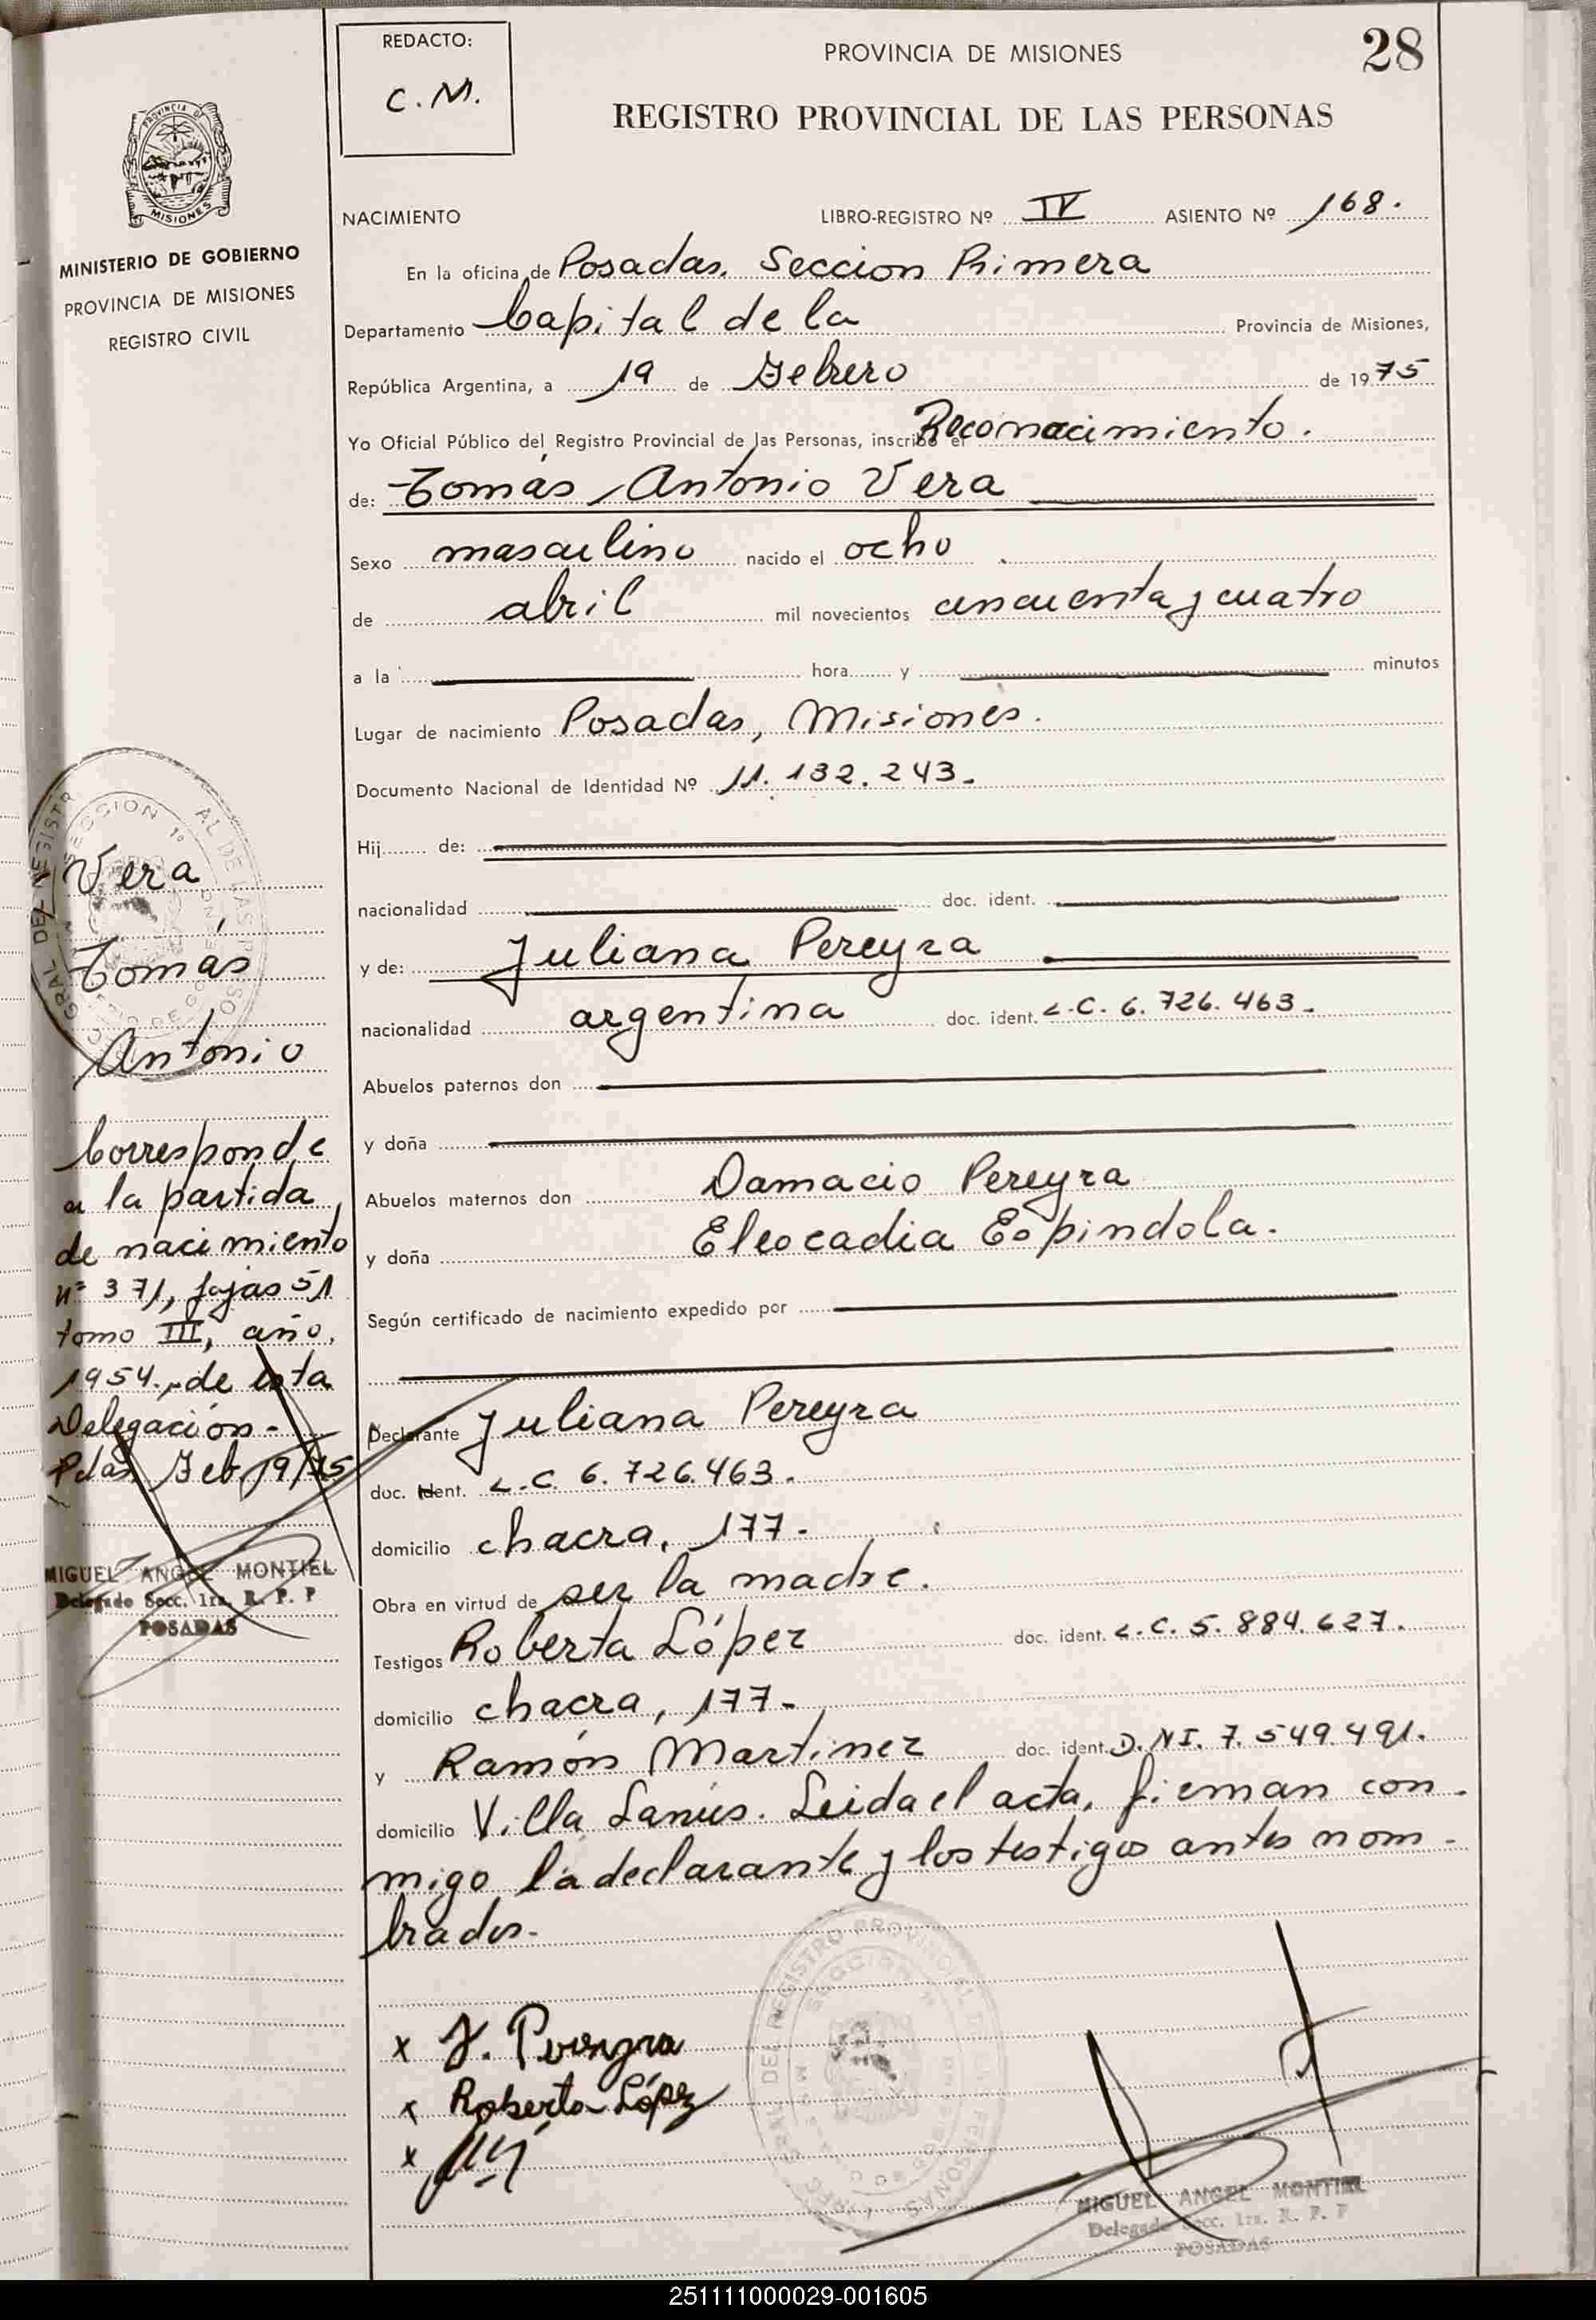 REDACTO:
C. M.
PROVINCIA DE MISIONES
28
REGISTRO PROVINCIAL DE LAS PERSONAS
MISIONES
MINISTERIO DE GOBIERNO
PROVINCIA DE MISIONES
REGISTRO CIVIL
NACIMIENTO LIBRO-REGISTRO Nº IV ASIENTO Nº 168.
En la oficina de Posadas. Seccion Primera
Departamento Capital de la Provincia de Misiones,
República Argentina, a 19 de Febrero de 1975
Yo Oficial Público del Registro Provincial de las Personas, inscribo el Reconocimiento.
de: Tomás Antonio Vera
Sexo masculino nacido el ocho
de abril mil novecientos cincuenta y cuatro
a la hora y minutos
Lugar de nacimiento Posadas, Misiones.
Documento Nacional de Identidad Nº 11.132.243.
Hij de:
nacionalidad doc. ident.
y de: Juliana Pereyra
nacionalidad argentina doc. ident. L.C. 6.726.463.
Abuelos paternos don
y doña
Abuelos maternos don Damacio Pereyra
y doña Eleocadia Espindola.
Según certificado de nacimiento expedido por
Declarante Juliana Pereyra
doc. ident. L.C. 6.726.463.
domicilio chacra, 177-
Obra en virtud de ser la madre.
Testigos Roberta López doc. ident. L.C. 5.884.627.
domicilio chacra, 177-
y Ramón Martinez doc. ident. D.NI. 7.549.491.
domicilio Villa Lanús. Leida el acta, firman con-
migo la declarante y los testigos antes nom-
brados.-
x J. Pereyra
x Roberta López
x
MIGUEL ANGEL MONTIEL
Delegado Secc. 1ra. R. P. P
POSADAS
Vera
Tomás
Antonio
Corresponde
a la partida
de nacimiento
nº 371, fojas 51
tomo III, año,
1954.- de esta
Delegación-
Pdas, Feb. 19/75
MIGUEL ANGEL MONTIEL
Delegado Secc. 1ra. R. P. P
POSADAS
251111000029-001605